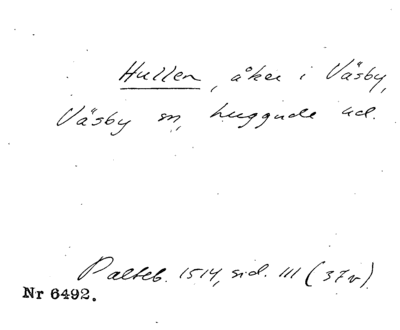 Hullen, åker i Väsby,
Väsby sn, Luggude hd.
Palteb. 1514, sid. 111 (37v)
Nr 6492.